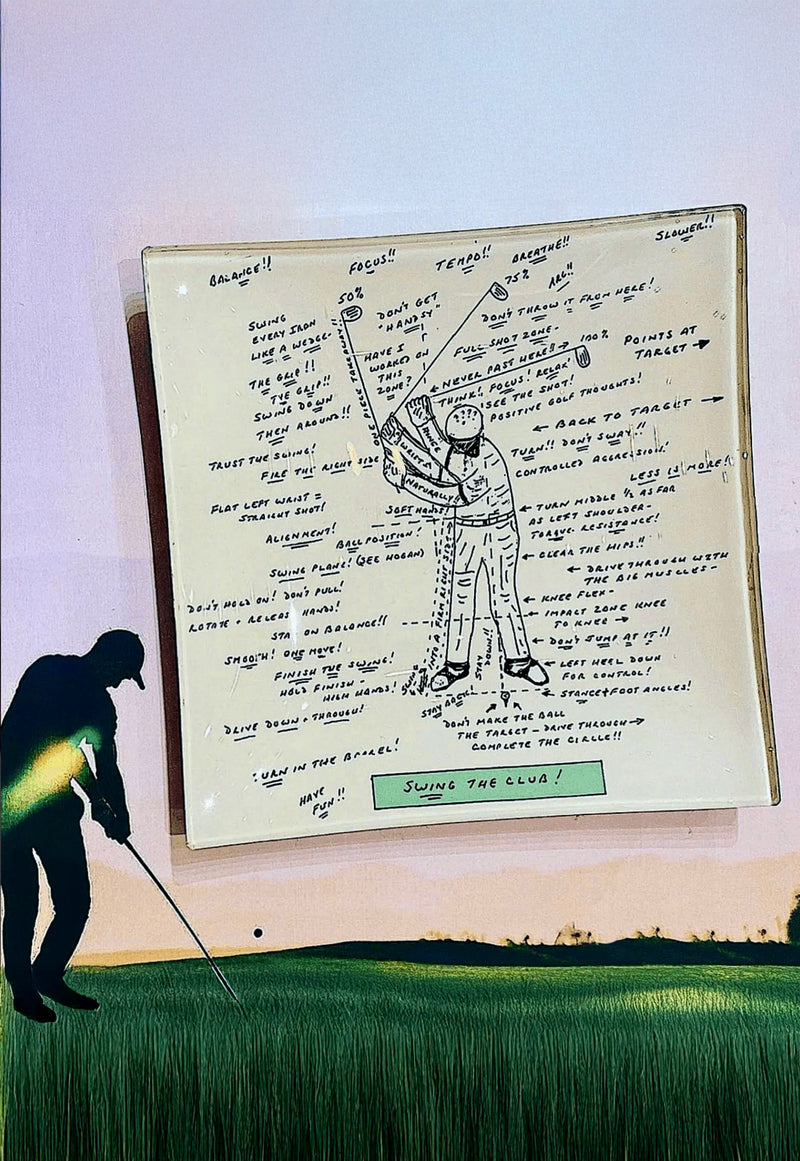 BALANCE!!
FOCUS!!
TEMPO!!
BREATHE!!
SLOWER!!
50%
75%
ARC!!
SWING
EVERY IRON
LIKE A WEDGE-
DON'T GET
"HANDSY"
DON'T THROW IT FROM HERE!
THE GRIP!!
THE GRIP!!
ONE PIECE TAKEAWAY!!
HAVE I
WORKED ON
THIS
ZONE?
FULL SHOT ZONE-
100%
NEVER PAST HERE!!
POINTS AT
TARGET
THINK! FOCUS! RELAX!
SEE THE SHOT!
POSITIVE GOLF THOUGHTS!
SWING DOWN
THEN AROUND!!
????
HINGE
WRISTS
NATURALLY!!
BACK TO TARGET
TURN!! DON'T SWAY!!
CONTROLLED AGGRESSION!
LESS IS MORE!
TRUST THE SWING!
FIRE THE RIGHT SIDE
FLAT LEFT WRIST =
STRAIGHT SHOT!
SOFT HANDS!
TURN MIDDLE ½ AS FAR
AS LEFT SHOULDER-
TORQUE RESISTANCE!
ALIGNMENT!
BALL POSITION!
SWING PLANE! (SEE HOGAN)
CLEAR THE HIPS!!
DRIVE THROUGH WITH
THE BIG MUSCLES-
DON'T HOLD ON! DON'T PULL!
ROTATE + RELEASE HANDS!
INTO A FIRM RIGHT SIDE
KNEE FLEX-
IMPACT ZONE KNEE
TO KNEE
STAY ON BALANCE!!
STAY
DOWN!!
DON'T JUMP AT IT!!
SMOOTH! ONE MOVE!
LEFT HEEL DOWN
FOR CONTROL!
FINISH THE SWING!
HOLD FINISH -
HIGH HANDS!
STAY BACK!
STANCE + FOOT ANGLES!
DRIVE DOWN + THROUGH!
DON'T MAKE THE BALL
THE TARGET - DRIVE THROUGH
COMPLETE THE CIRCLE!!
TURN IN THE BARREL!
HAVE
FUN!!
SWING THE CLUB!